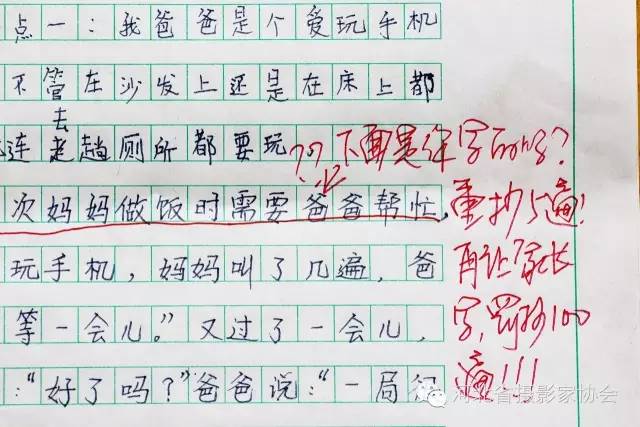 点一：我爸爸是个爱玩手机
不管在沙发上还是在床上都
去
连趟厕所都要玩
次妈妈做饭时需要爸爸帮忙，
玩手机，妈妈叫了几遍，爸
等一会儿。”又过了一会儿，
：“好了吗？”爸爸说：“一局
??下面是你字的吗？
重抄5遍！
再让家长
字，罚抄100
遍！！！
河北省摄影家协会